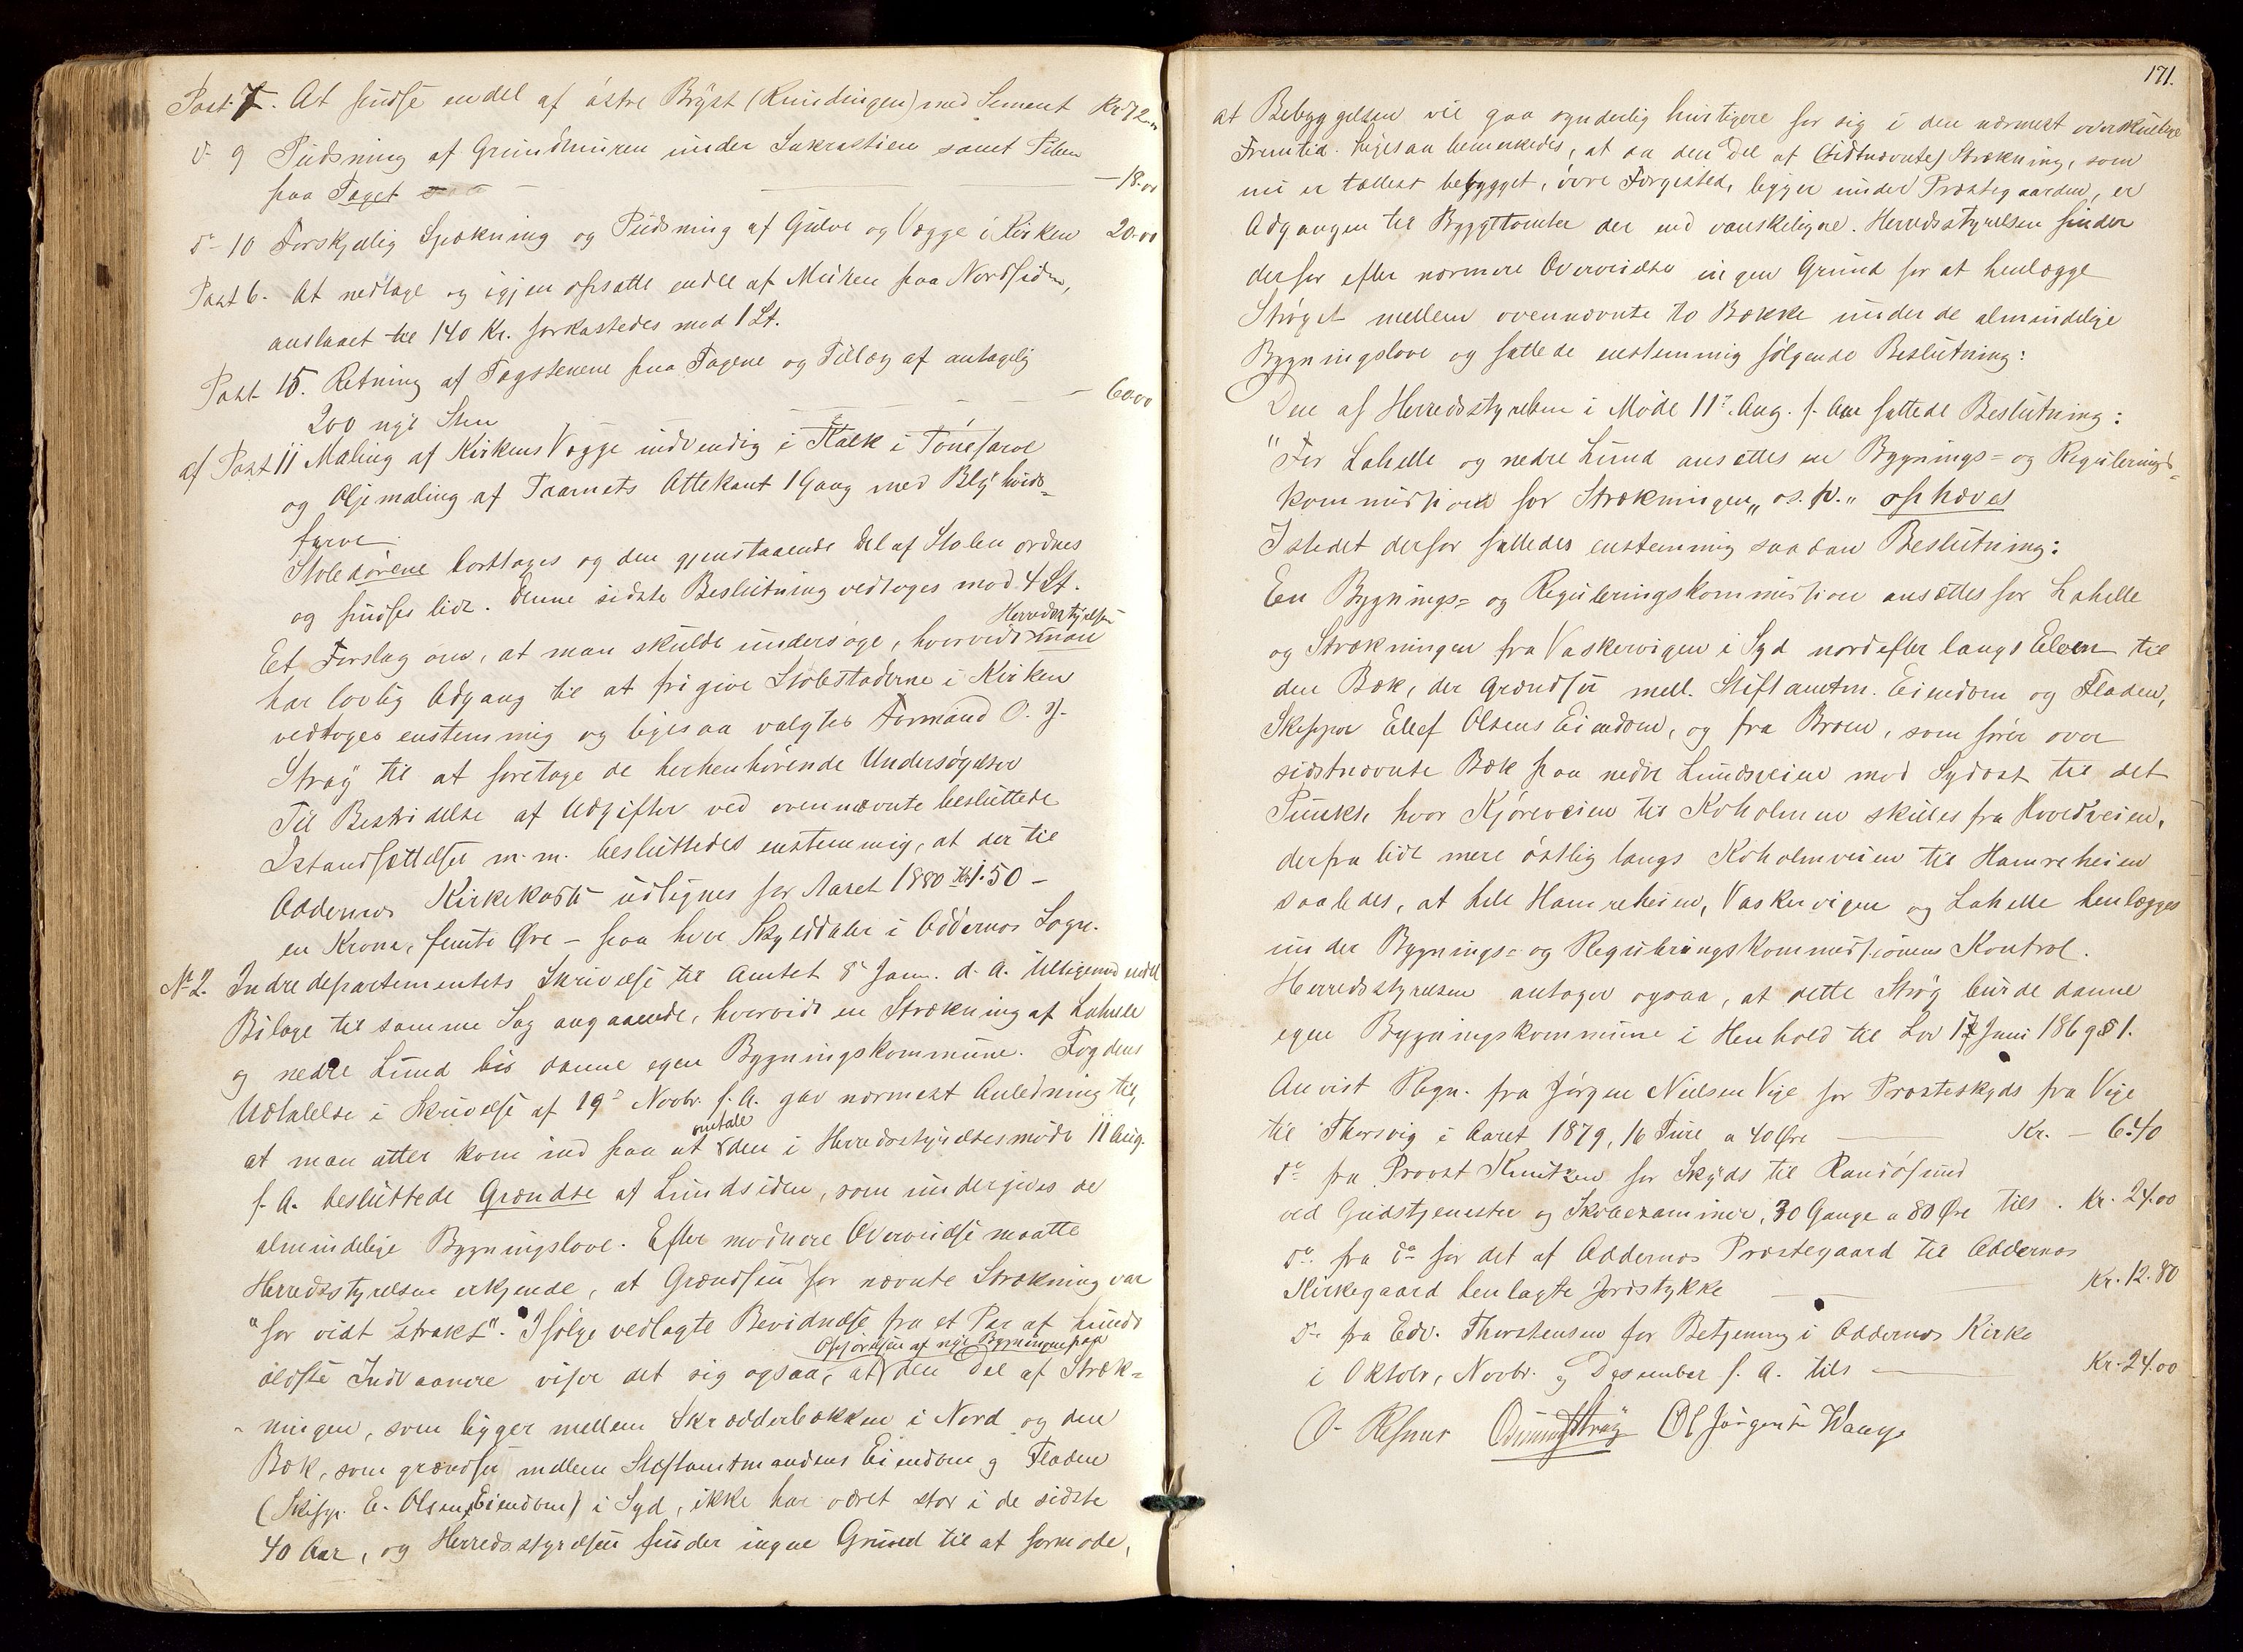 Post 7. At pudse endel af østre Bryst (Rundingen) med Sement Kr. 72.00
do 9 Pudsning af Grundmuren under Sakrastien samt Piben
paa Taget — 18.00
do 10 Forskjellig Spækning og Pudsning af Gulve og Vægge i Kirken 20.00
Post 6. At nedtage og igjen opsætte endel af Muren paa Nordsiden,
anslaaet til 140 Kr. forkastedes mod 1 St.
Post 15. Retning af Tagstenene paa Tagene og Tillæg af antagelig
200 nye Sten — 60.00
af Post 11 Maling af Kirkens Vægge indvendig i Kalk i Tónefarve
og Oljemaling af Taarnets Ottekant 1 Gang med Blyhvids-
farve.
Stoledørene borttages og den gjenstaaende Del af Stolen ordnes
og pudses lidt. Denne sidste Beslutning vedtoges mod 4 St.
Et Forslag om, at man skulde undersøge, hvorvidt Herredsstyrelsen
har lovlig Adgang til at frigive Stolestaderne i Kirken
vedtoges enstemmig og ligesaa valgtes Formand O. J.
Strøy til at foretage de herhenhørende Undersøgelser
Til Bestridelse af Udgifter ved ovennævnte besluttede
Istandsættelser m.m. besluttedes enstemmig, at der til
Oddernes Kirkekasse udlignes for Aaret 1880 Kr. 1.50 –
en Krone, femti Øre – paa hver Skylddaler i Oddernes Sogn.
No 2. Indredepartementets Skrivelse til Amtet 8de Janr. d. A. tilligemed endel
Bilage til samme Sag angaaende, hvorvidt en Strækning af Lahelle
og nedre Lund bør danne egen Bygningskommune. Fogdens
Udtalelse i Skrivelse af 19de Novbr. f. A. gav nærmest Anledning til,
at man atter kom ind paa at omtale den i Herredsstyrelsesmøde 11 Aug.
f. A. besluttede Grændse af Lundsiden, som undergives de
almindelige Bygningslove. Efter modnere Overveielse maatte
Herredsstyrelsen erkjende, at Grændsen for nævnte Strækning var
"for vidt strakt". Ifølge vedlagte Bevidnelse fra et Par af Lunds
ældste Indvaanere viser det sig ogsaa, at Opførelsen af nye Bygninger paa den Del af Stræk-
ningen, som ligger mellem Skrædderbækken i Nord og den
Bæk, som grændser mellem Stiftamtmandens Eiendom og Fladen
(Skipr. E. Olsens Eiendom) i Syd, ikke har været stor i de sidste
40 Aar, og Herredsstyrelsen finder ingen Grund til at formode,
171.
at Bebyggelsen vil gaa synderlig hurtigere for sig i den nærmest overskuelige
Fremtid. Ligesaa bemærkedes, at da den Del af (sidtnævnte) Strækning, som
nu er tættest bebygget, øvre Færgested, ligger under Præstegaarden, er
Adgangen til Byggetomter der end vanskeligere. Herredsstyrelsen finder
derfor efter nærmere Overveielse ingen Grund for at henlægge
Strøget mellem ovennævnte to Bække under de almindelige
Bygningslove og fattede enstemmig følgende Beslutning:
Den af Herredsstyrelsen i Møde 11te Aug. f. Aar fattede Beslutning:
"For Lahelle og nedre Lund ansættes en Bygnings- og Regulerings-
kommission for Strækningen" o.s.v." ophæves
Istedet derfor fattedes enstemmig saadan Beslutning:
En Bygnings- og Reguleringskommission ansættes for Lahelle
og Strækningen fra Vaskervigen i Syd nordefter langs Elven til
den Bæk, der grændser mell. Stiftamtm. Eiendom og Fladen,
Skipper Ellef Olsens Eiendom, og fra Broen, som fører over
sidstnævnte Bæk paa nedre Lundsveien mod Sydost til det
Punkt, hvor Kjøreveien til Koholmen skilles fra Hovedveien,
derfra lidt mere østlig langs Koholmveien til Hamreheien
saaledes, at hele Hamreheien, Vaskervigen og Lahelle henlægges
under Bygnings- og Reguleringskommissionens Kontrol.
Herredsstyrelsen antager ogsaa, at dette Strøg burde danne
egen Bygningskommune i Henhold til Lov 17 Juni 1869 § 1.
Anvist Regn. fra Jørgen Nielsen Vige for Præsteskyds fra Vige
til Thorsvig i Aaret 1879, 16 Ture a 40 Øre — Kr. – 6.40
do fra Provst Knutzen for Skyds til Randøsund
ved Gudstjenester og Skoleexaminer, 30 Gange a 80 Øre tils. Kr. 24.00
do fra do for det af Oddernes Præstegaard til Oddernes
Kirkegaard henlagte Jordstykke — Kr. 12.80
do fra Edv. Thorstensen for Betjening i Oddernes Kirke
i Oktobr, Novbr. og Desember f. A. tils — Kr. 24.00
O. Strøy Ol Jørgensen Waage